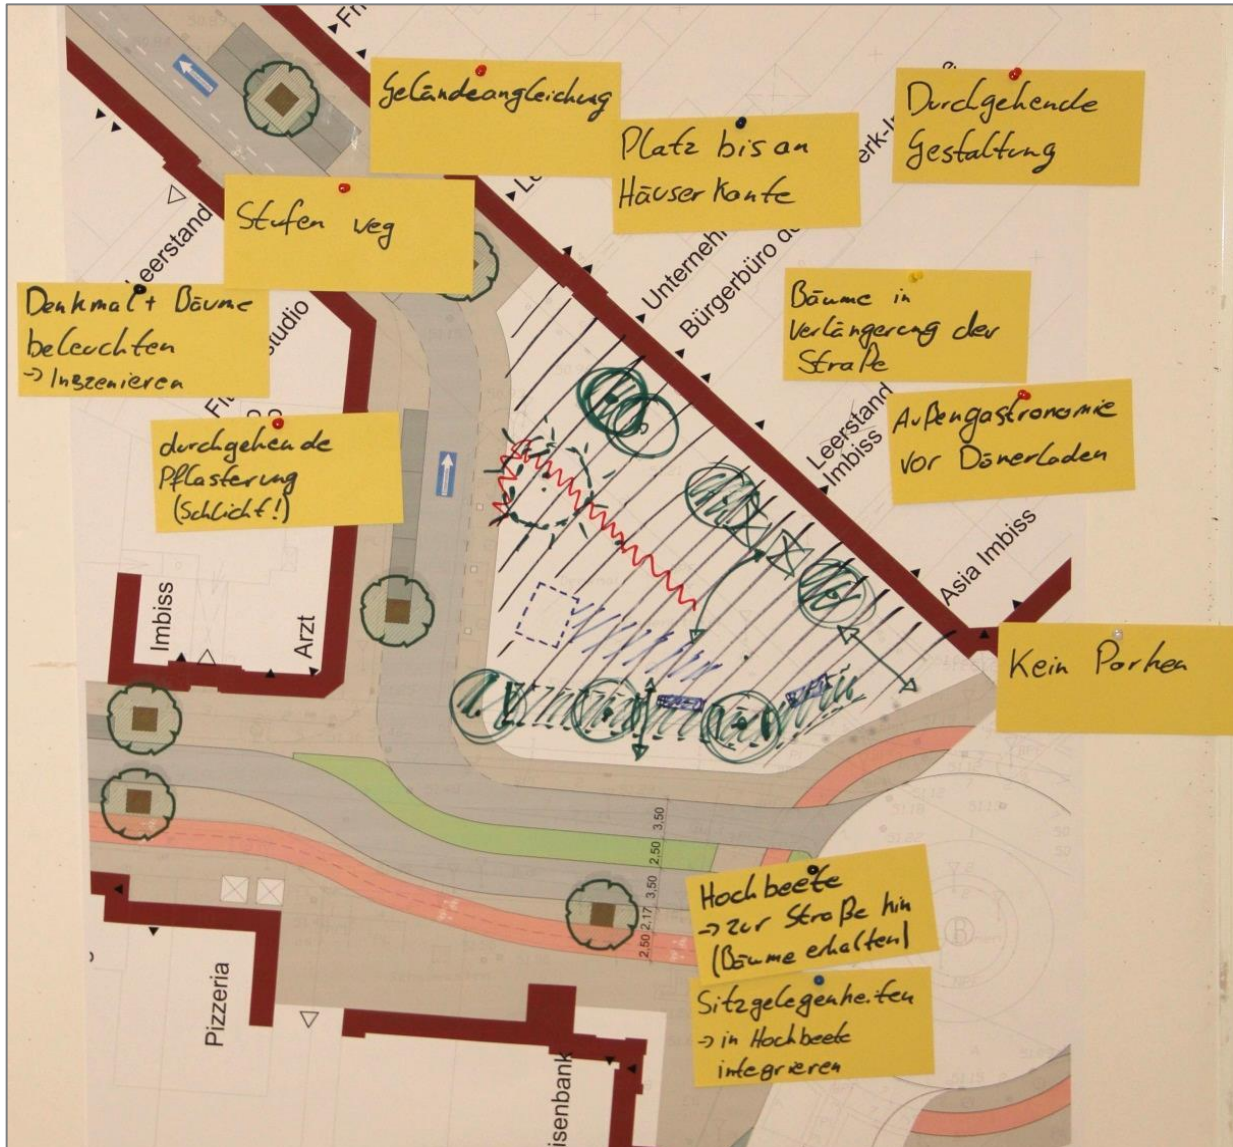 Geländeangleichung
Platz bis an
Häuserkante
Durchgehende
Gestaltung
Stufen weg
Denkmal + Bäume
beleuchten
-> Inszenieren
Bäume in
Verlängerung der
Straße
Außengastronomie
vor Dönerladen
durchgehende
Pflasterung
(Schlicht!)
Kein Parken
Hochbeete
-> zur Straße hin
(Bäume erhalten)
Sitzgelegenheiten
-> in Hochbeete
integrieren
Leerstand
studio
Unterneh
Bürgerbüro de
erk-In
Leerstand
Imbiss
Asia Imbiss
Imbiss
Arzt
Pizzeria
isenbank
3,50
2,50
3,50
2,17
2,50